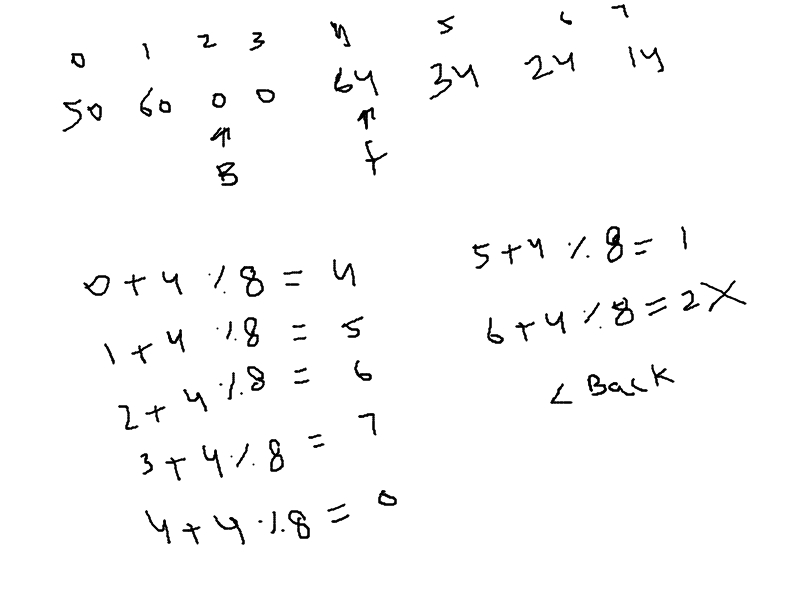 0 1 2 3 4 5 6 7
50 60 0 0 64 34 24 14
B f
0 + 4 % 8 = 4
1 + 4 % 8 = 5
2 + 4 % 8 = 6
3 + 4 % 8 = 7
4 + 4 % 8 = 0
5 + 4 % 8 = 1
6 + 4 % 8 = 2 X
< Back